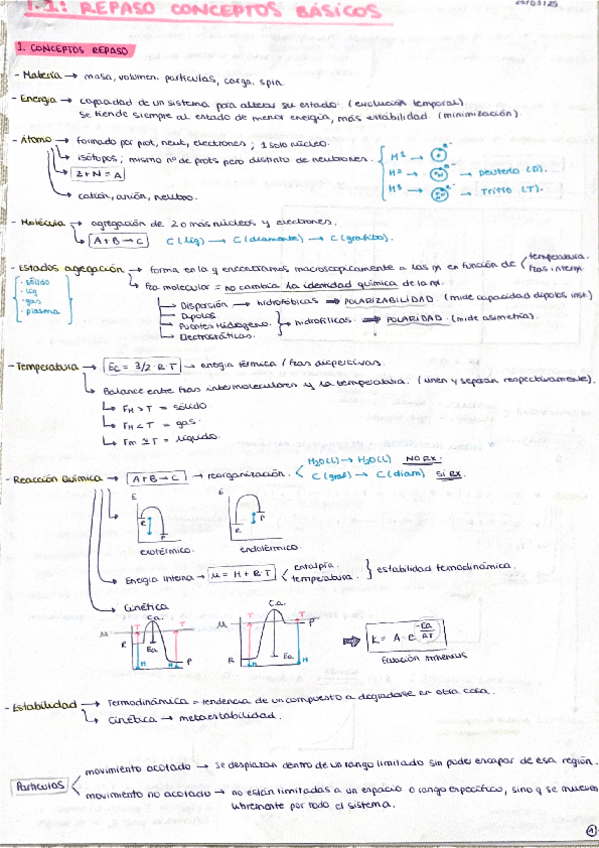 1.1: REPASO CONCEPTOS BÁSICOS
1. CONCEPTOS REPASO
- Materia → masa, volumen, partículas, carga, spin.
- Energía → capacidad de un sistema para alterar su estado. (evolución temporal)
Se tiende siempre al estado de menor energía, más estabilidad (minimización).
- Átomo → formado por prot, neut, electrones; 1 solo núcleo.
→ isótopos; mismo nº de prots pero distinto de neutrones.
H¹ →
H² → Deuterio (D).
H³ → Tritio (T).
Z+N = A
→ catión, anión, neutro.
- Molécula → agregación de 2 o más núcleos y electrones.
A+B → C C(liq) → C(diamante) → C(grafito).
- Estados agregación → forma en la q encontramos macroscópicamente a las en función de temperatura.
fzas intermol.
· sólido
· liq
· gas
· plasma
Fza molecular = no cambia la identidad química de la
→ Dispersión → hidrofóbicas ⇒ POLARIZABILIDAD. (mide capacidad dipolos inst.)
→ Dipolos
→ Puentes Hidrógeno. → hidrofílicas. ⇒ POLARIDAD. (mide asimetría).
→ Electrostáticas.
- Temperatura → Ec = 3/2 · R · T → energía térmica / fzas dispersivas.
→ Balance entre fzas intermoleculares y la temperatura. (unen y separan respectivamente).
→ FM > T = sólido
→ FM < T = gas.
→ FM ≃ T = líquido.
- Reacción Química → A+B → C → reorganización. H2O(L) → H2O(L) NO RX.
C(graf) → C(diam) SÍ RX.
E
R
P
exotérmico.
E
R
P
endotérmico
→ Energía Interna → μ = H + R·T entalpía.
temperatura. } estabilidad termodinámica.
→ Cinética
C.a.
μ T T R Ea H P
C.a.
μ T T P R Ea H H
⇒ K = A · e^(-Ea/RT)
Ecuación Arrhenius
- Estabilidad → Termodinámica = tendencia de un compuesto a degradarse en otra cosa.
→ Cinética → metaestabilidad.
Partículas
movimiento acotado → se desplazan dentro de un rango limitado sin poder escapar de esa región.
movimiento no acotado → no están limitadas a un espacio o rango específico, sino q se mueven
libremente por todo el sistema.
1